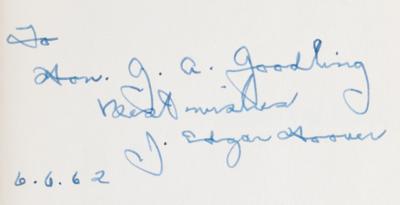 To
Hon. G. A. Goodling
Best wishes
J. Edgar Hoover
6.6.62